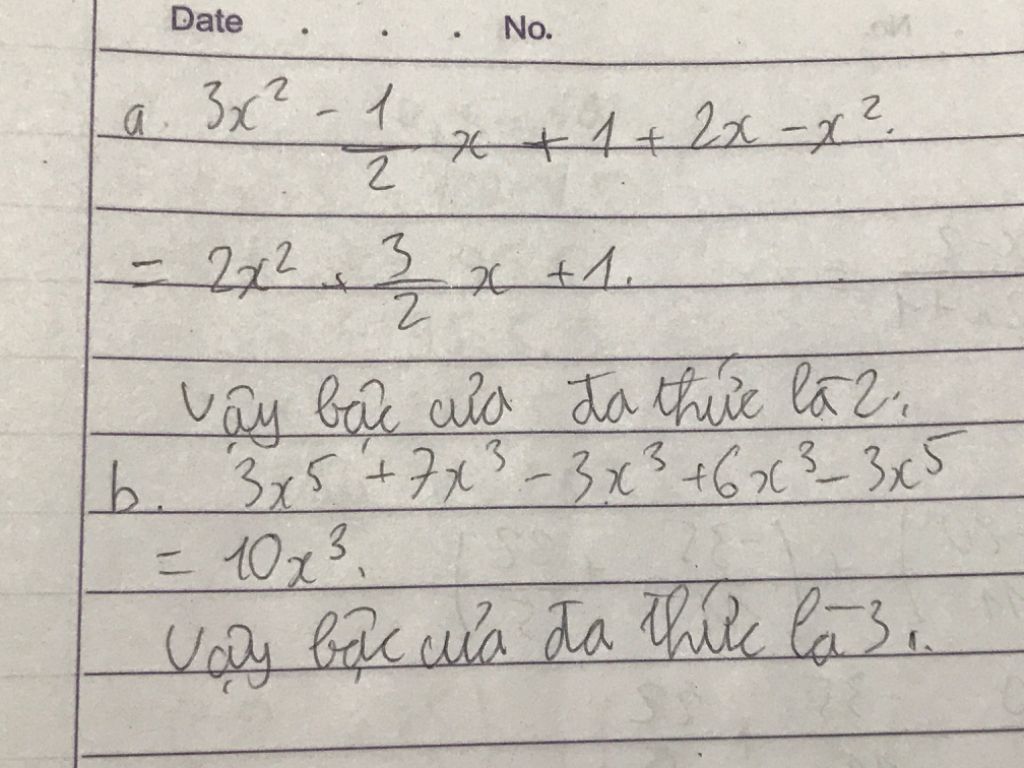 Date . . . No.
a. 3x² - 1/2 x + 1 + 2x - x².
= 2x² + 3/2 x + 1.
Vậy bậc của đa thức là 2.
b. 3x⁵ + 7x³ - 3x³ + 6x³ - 3x⁵
= 10x³.
Vậy bậc của đa thức là 3.